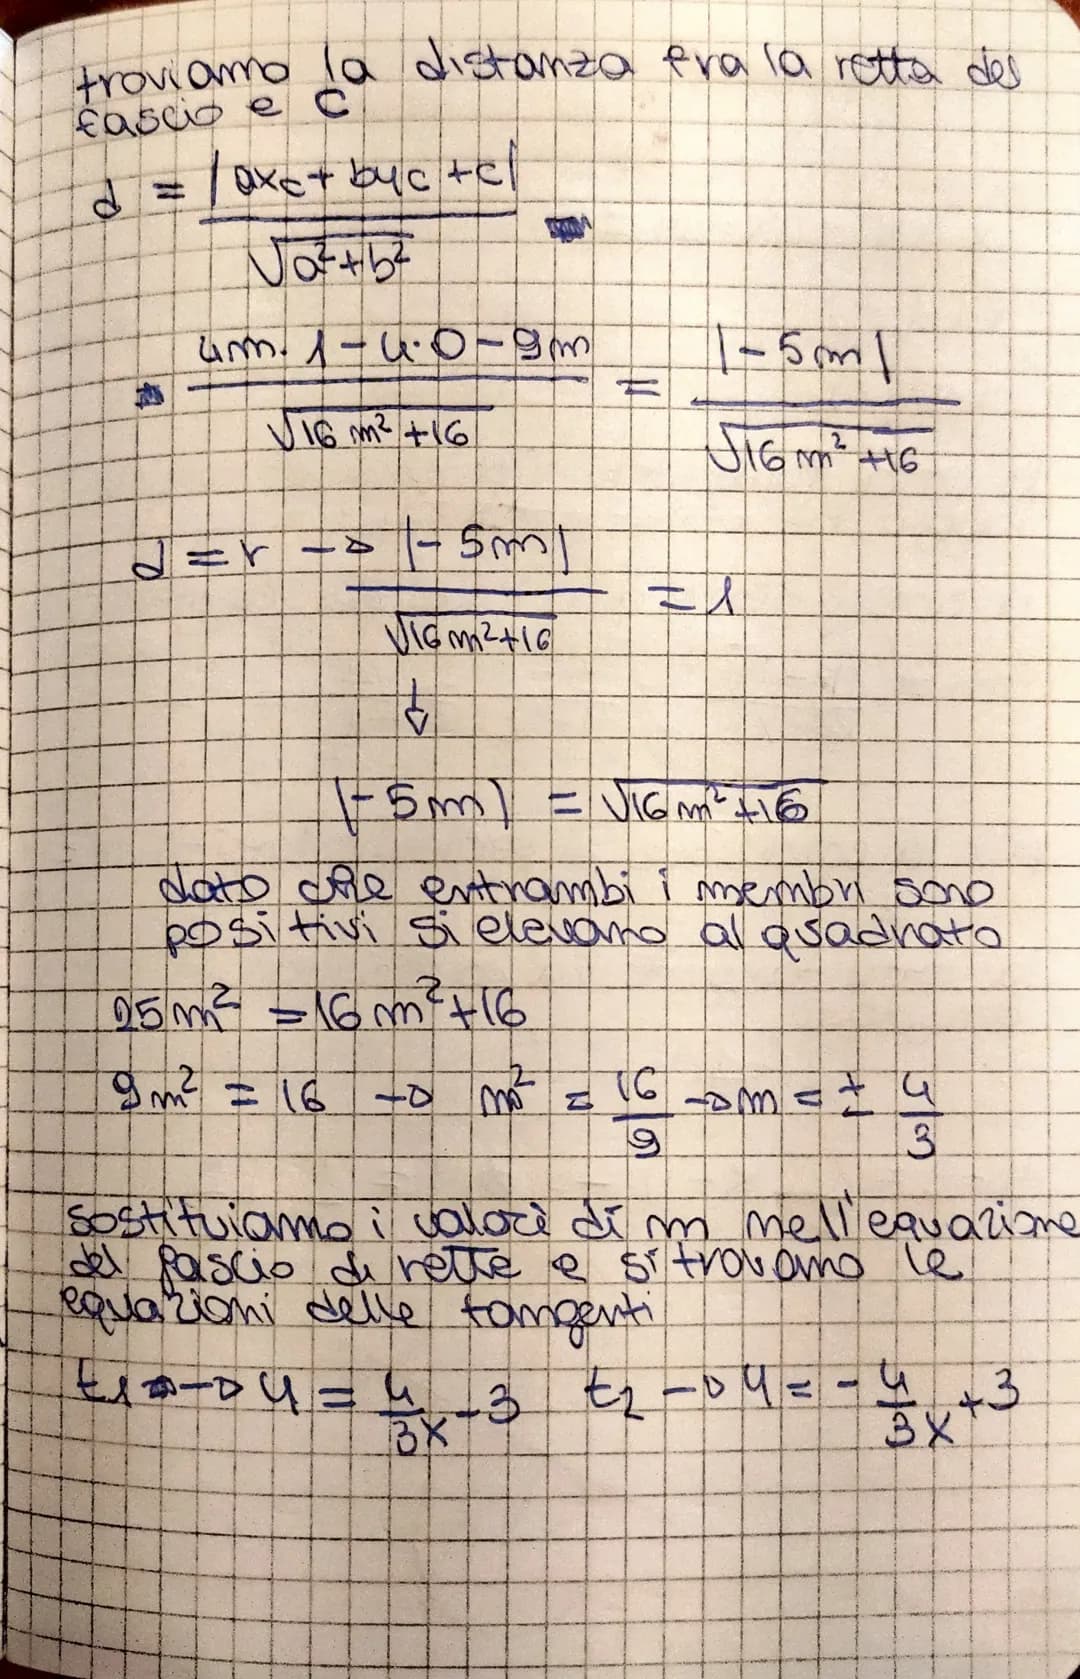 troviamo la distanza fra la retta del
fascio e C
d = |axc + byc + c| / √a²+b²
4m · 1 - 4 · 0 - 9m / √16m²+16 = |-5m| / √16m²+16
d = r → |-5m| / √16m²+16 = 1
↓
|-5m| = √16m²+16
dato che entrambi i membri sono
positivi si elevano al quadrato
25m² = 16m²+16
9m² = 16 → m² = 16/9 → m = ± 4/3
sostituiamo i valori di m nell'equazione
del fascio di rette e si trovano le
equazioni delle tangenti
t1 → y = 4/3x - 3 t2 → y = - 4/3x + 3